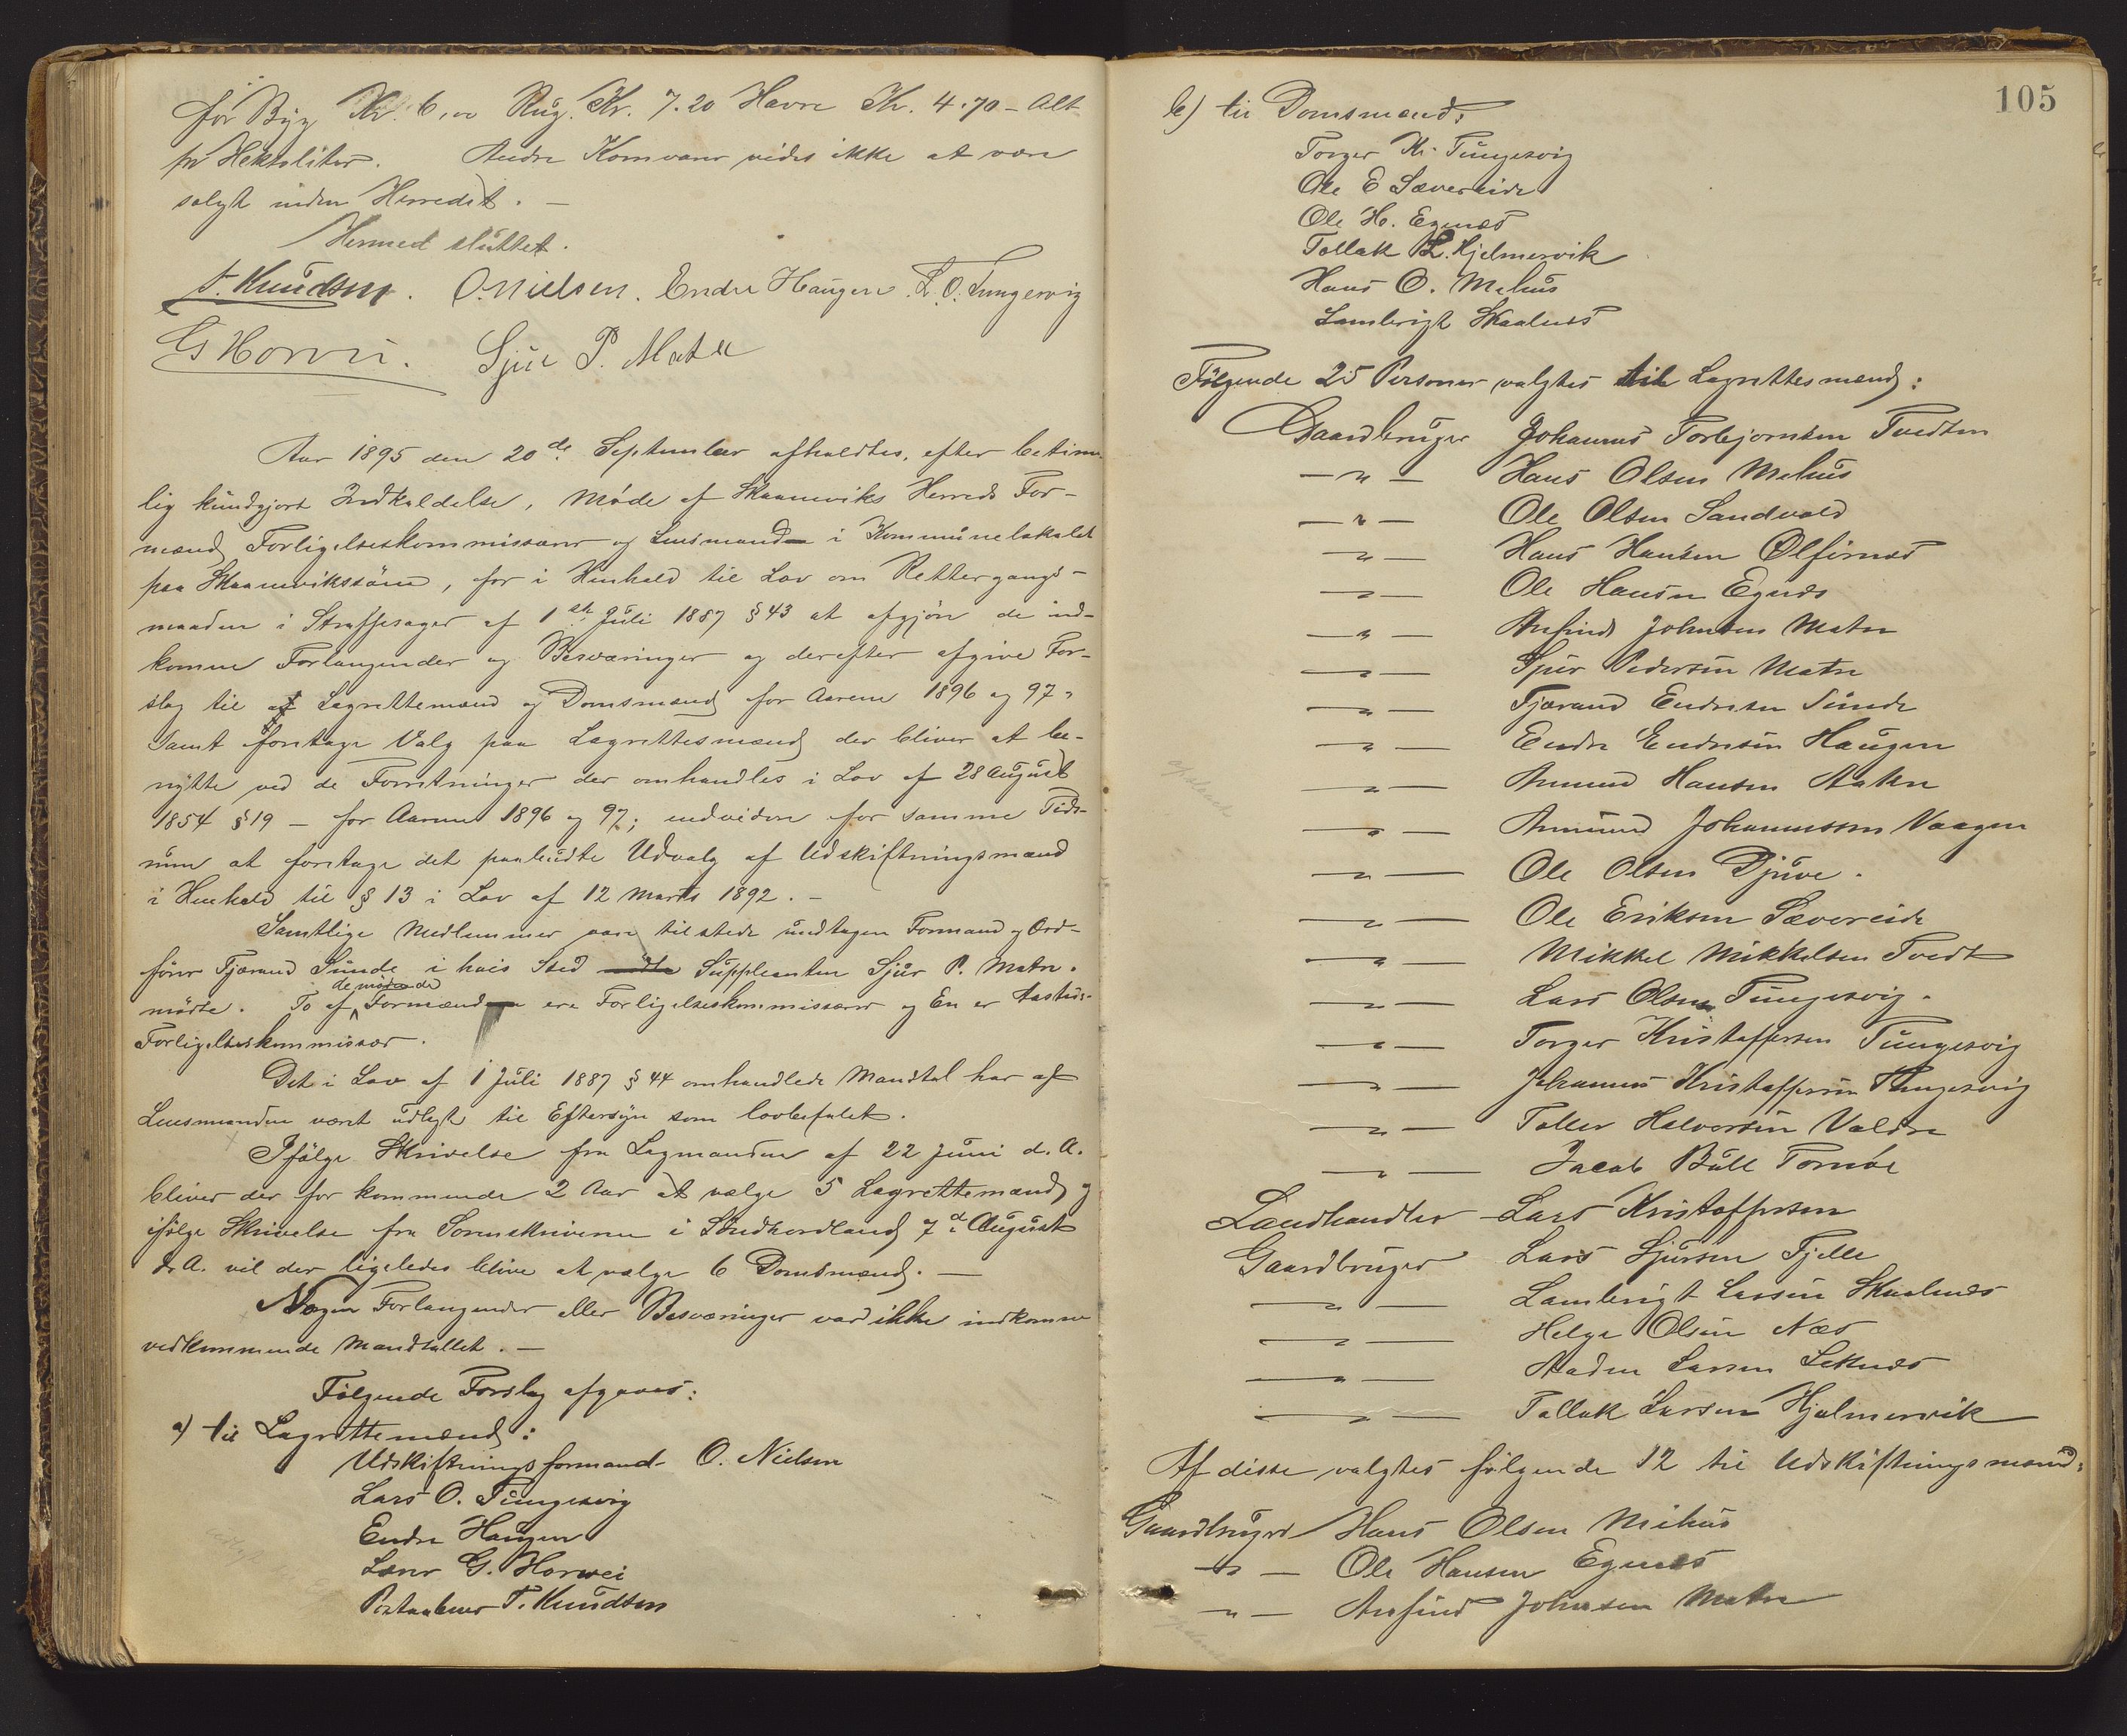 for Byg Kr. 6,00 Rug. Kr. 7.20 Havre Kr. 4.70 - Alt
pr Hektoliter. Andre Kornvarer vides ikke at være
solgt inden Herredet. -
Hermed sluttet.
T. Knudsen. O. Nielsen. Endre Haugen. L. O. Tungesvig
G Horvei. Sjur P. Matre
Aar 1895 den 20de September afholdtes, efter betime-
lig kundgjort Indkaldelse, Møde af Skaaneviks Herreds For-
mænd, Forligelseskommissærer og Lensmand i Kommunelokalet
paa Skaanevikssøen, for i Henhold til Lov om Rettergangs-
maaden i Straffesager af 1ste Juli 1887 § 43 at afgjøre de ind-
komne Forlangender og Besværinger og derefter afgive For-
slag til af Lagrettemænd og Domsmænd for Aarene 1896 og 97,
samt foretage Valg paa Lagrettesmænd der bliver at be-
nytte ved de Forretninger der omhandles i Lov af 28 August
1854 § 19 - for Aarene 1896 og 97; endvidere for samme Tids-
rum at foretage det paabudte Udvalg af Udskiftningsmænd
i Henhold til § 13 i Lov af 12 Marts 1892. -
Samtlige Medlemmer vare tilstede undtagen Formand og Ord-
fører Tjærand Sunde i hvis Sted mødte Suppleanten Sjur P. Matre.
de mødende
mødte. To af Formænd ere Forligelseskommissærer og En er Aasteds-
Forligelseskommissær.
Det i Lov af 1 Juli 1887 § 44 omhandlede Mandtal har af
Lensmanden været udlagt til Eftersyn som lovbefalet.
Ifølge Skrivelse fra Lagmanden af 22 Juni d. A.
bliver der for kommende 2 Aar at vælge 5 Lagrettemænd og
ifølge Skrivelse fra Sorenskriveren i Søndhordland 7de August
d. A. vil der ligeledes blive at vælge 6 Domsmænd. -
Nogen Forlangender eller Besværinger var ikke indkomne
vedkommende Mandtallet. -
Følgende Forslag afgaves:
a) til Lagrettemænd:
Udskiftningsformand O. Nielsen
Lars O. Tungesvig
Endre Haugen
Lærer G. Horvei
Postaabner T. Knudsen
105
b) til Domsmænd:
Torger Kr. Tungesvig
Ole E Sævereide
Ole H. Egenæs
Tollak L. Hjelmervik
Hans O. Mehus
Lambrigt Skaalnæs
Følgende 25 Personer valgtes til Lagrettesmænd:
Gaardbruger Johannes Torbjørnsen Tvedten
-"- Hans Olsen Mehus
-"- Ole Olsen Sandvold
-"- Hans Hansen Ølfirnæs
-"- Ole Hansen Egnæs
-"- Anfind Johnsen Matre
-"- Sjur Pedersen Matre
-"- Tjærand Endresen Sunde
-"- Endre Endresen Haugen
-"- Amund Hansen Aakre
-"- Amund Johannessen Vaagen
-"- Ole Olsen Djuve.
-"- Ole Eriksen Sævereide
-"- Mikkel Mikkelsen Tvedt
-"- Lars Olsen Tungesvig.
-"- Torger Kristoffersen Tungesvig
-"- Johannes Kristoffersen Tungesvig
-"- Tollev Halvorsen Valdre
-"- Jacob Bull Tornøe
Landhandler Lars Kristoffersen
Gaardbruger Lars Sjursen Fjelle
-"- Lambrigt Larsen Skaalnæs
-"- Helge Olsen Næs
-"- Aaden Larsen Seknæs
-"- Tollak Larsen Hjelmervik
Af disse valgtes følgende 12 til Udskiftningsmænd:
Gaardbruger Hans Olsen Mehus
-"- Ole Hansen Egenæs
-"- Anfind Johnsen Matre